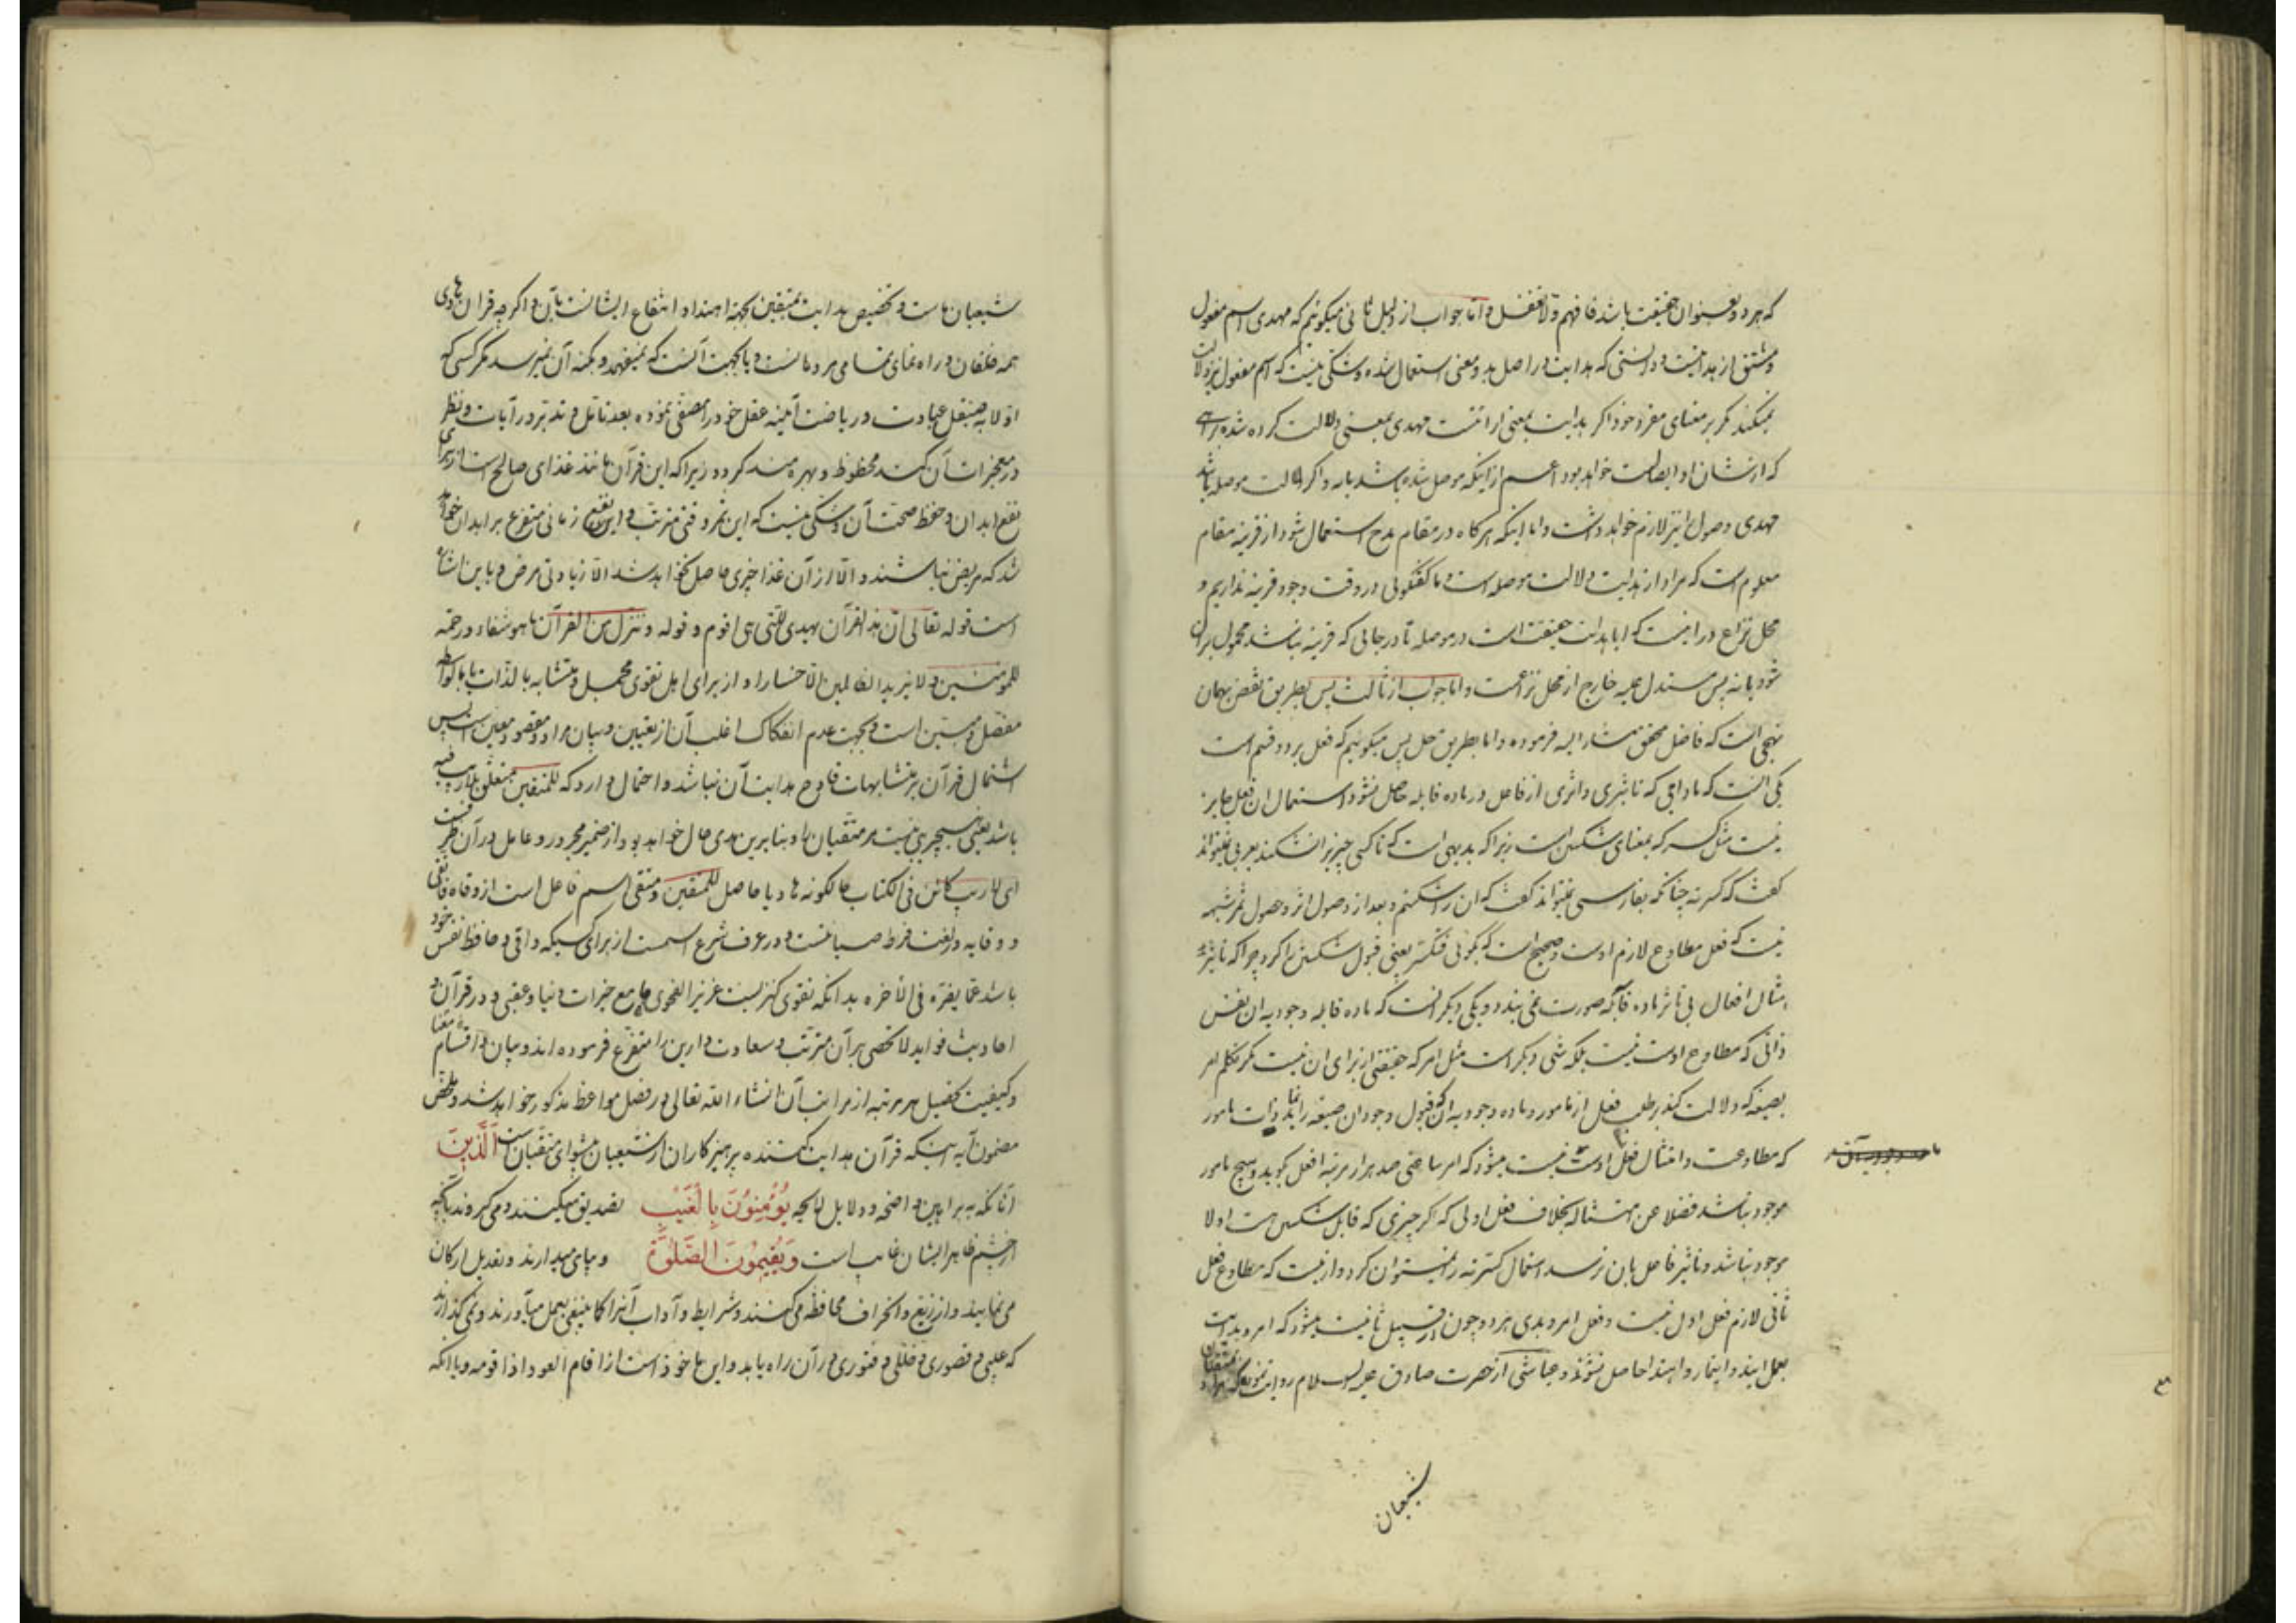 که هر دو بعنوان حقیقت باشد فافهم ولا تغفل و اما جواب از دلیل ثانی میگوئیم که مهدی اسم مفعول
و مشتق از هدایتست و دانستی که هدایت در اصل بدو معنی استعمال شده و شکی نیست که اسم مفعول نیز دلالت
نمیکند مگر بر معنای مفرد خود اگر هدایت بمعنی ارائتست مهدی بمعنی دلالت کرده شده براهی
که از شان او ایصالست خواهد بود اعم از اینکه موصل شده باشد یا نه و اگر دلالت موصله باشد
مهدی وصول را نیز لازم خواهد داشت و اما اینکه هرگاه در مقام مدح استعمال شود از قرینه مقام
معلوم است که مراد از هدایت دلالت موصله است و ما گفتگوئی در وقت وجود قرینه نداریم و
محل نزاع در اینست که ایا هدایت حقیقت است در موصله تا در جائی که قرینه نباشد محمول بران
شود یا نه پس مستدل علیه خارج از محل نزاعست و اما جواب از ثالث پس بطریق نقض بهمان
نهجی است که فاضل محقق مشار الیه فرموده و اما بطریق حل پس میگوئیم که فعل بر دو قسم است
یکی انست که مادامی که تاثیری و اثری از فاعل در ماده قابله حاصل نشود استعمال ان فعل جایز
نیست مثل کسر که بمعنای شکستن است زیرا که بدیهی است که تا کسی چیزیرا نشکند بعربی نمیتواند
گفت که کسرته چنانکه بفارسی نمیتواند گفت که ان را شکستم و بعد از وصول اثر و حصول ثمر شبهه
نیست که فعل مطاوع لازم اوست و صحیح است که بگوئی فتکسر یعنی قبول شکستن را کرد چرا که تاثیر
مثال افعال بی تاثر ماده قابله صورت نمی بندد و یکی دیگر انست که ماده قابله وجود به ان نفس
ذاتی که مطاوع اوست نیست بلکه شی دیگر است مثل امر که حقیقتی از برای ان نیست مگر تکلم امر
بصیغه که دلالت کند بر طلب فعل از مامور و ماده وجود به ان که قبول وجود ان صیغه را نماید ذات مامور
که مطاوعت و امتثال فعل اوست نیست میشود که امر ساعتی صد هزار مرتبه افعل گوید و هیچ مامور
موجود نباشد فضلا عن امتثاله بخلاف فعل اولی که اگر چیزی که قابل شکستن است اولا
موجود نباشد و تاثیر فاعل بان نرسد استعمال کسرته را نمیتوان کرد و از اینست که مطاوع فعل
ثانی لازم فعل اول نیست و فعل امر و هدی هر دو چون از قبیل ثانیست میشود که امر و هدایت
بعمل ایند و ایتمار و اهتدا حاصل نشوند و عیاشی از حضرت صادق علیه السلام روایت نموده که مراد متقیان
شیعیان
شیعیان ماست و تخصیص هدایت بمتقین بجهة اهتدا و انتفاع ایشانست بآن و اگر چه قران هادی
همه خلقان و راه نمای تمامی مردمانست و یا بجهت آنست که نمیفهمد و بکنه آن نمیرسد مگر کسی که
اولا به صیقل عبادت و ریاضت آئینه عقل خود را مصفی نموده بعد تامل و تدبر در آیات و نظر
در معجزات آن کند محظوظ و بهره مند گردد زیرا که این قرآن مانند غذای صالح است از برای
نفع ابدان و حفظ صحت آن و شکی نیست که این ثمر وقتی مترتب و این نفع زمانی متفرع بر ابدان خواهد
شد که مریض نباشند و الا از آن غذا چیزی حاصل نخواهد شد الا زیادتی مرض و باین اشاره
است قوله تعالی ان هذا القرآن یهدی للتی هی اقوم و قوله و ننزل من القرآن ما هو شفاء و رحمة
للمؤمنین و لا یزید الظالمین الا خسارا و از برای اهل تقوی مجمل و متشابه بالذات یا بالواسطه
مفصل و مبین است و بجهت عدم انفکاک اغلب آن از تعیین و بیان مراد و مقصود معین است پس
اشتمال قرآن بر متشابهات قادح هدایت آن نباشد و احتمال دارد که للمتقین متعلق بلاریب فیه
باشد یعنی هیچ ریبی نیست مر متقیان را و بنابرین هدی حال خواهد بود از ضمیر مجرور و عامل در آن ظرفست
ای لا ریب کائن فی الکتاب حالکونه هادیا حاصل للمتقین و متقی اسم فاعل است از وقاه فاتقی
و وقایه در لغت فرط صیانتست و در عرف شرع اسمست از برای کسیکه واقی و حافظ نفس خود
باشد عما یضره فی الآخره بدانکه تقوی کنزیست عزیز الفحوی جامع خیرات دنیا و عقبی و در قرآن و
احادیث فواید لا تحصی بر آن مترتب و سعادت دارین را متفرع فرموده اند و بیان اقسام و معنا
و کیفیت تحصیل هر مرتبه از مراتب آن انشاء الله تعالی در فصل مواعظ مذکور خواهد شد و ملخص
مضمون آیه اینکه قرآن هدایت کننده پرهیزکاران از شیعیان پیشوای متقیان است الَّذینَ
آنانکه به براهین واضحه و دلایل لایحه یُؤْمِنُونَ بِالْغَیْبِ تصدیق میکنند و می گروند بآنچه
از چشم ظاهر ایشان غایب است وَیُقیمُونَ الصَّلوٰةَ و بپای میدارند و تعدیل ارکان
می نمایند و از زیغ و انحراف محافظه می کنند و شرایط و آداب آنرا کما ینبغی بعمل میآورند و نمی گذارند
که عیبی و قصوری و خللی و فتوری در آن راه یابد و این ماخوذ است از اقام العود اذا قومه و یا انکه